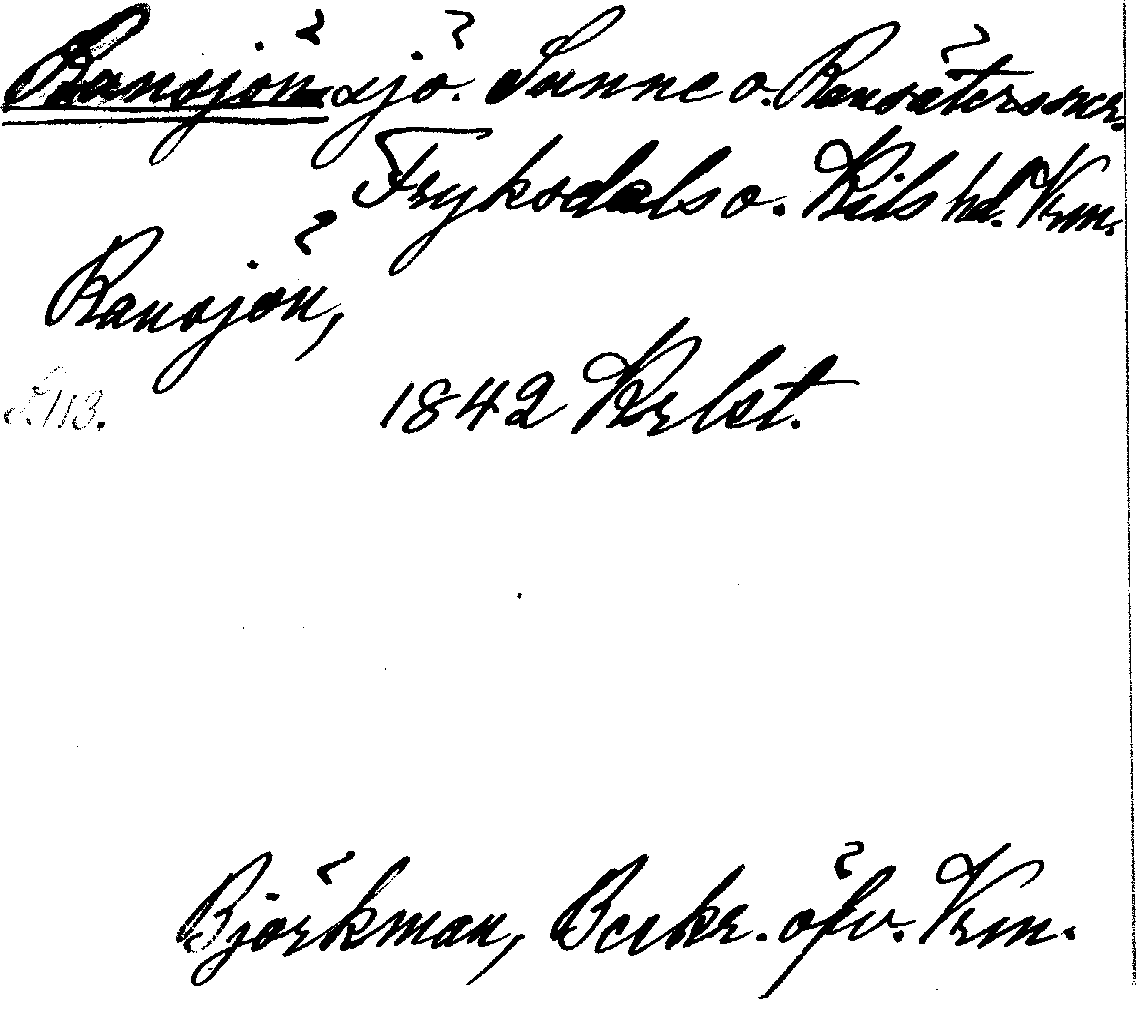 Ransjön sjö. Sunne o. Ransäters sner.
Fryksdals o. Kils hd. Vrm.
Ransjön,
S. 113. 1842 Krlst.
Björkman, Beskr. öfv. Vrm.